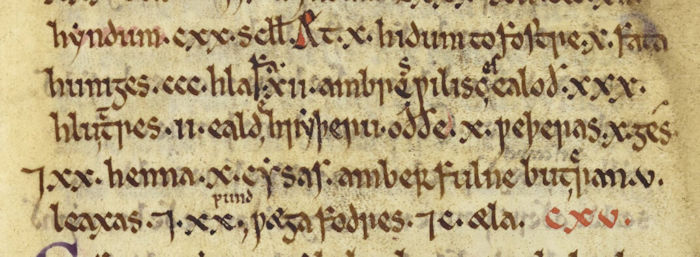 hyndum. cxx. scɫɫ. Æt. x. hidum to fostre. x. fata
huniges. ccc. hlafa. xii. ambres ƿilisces ealoð. xxx.
hlutres. ii. ealde hryþeru. oððe. x. ƿeþeras. x. ges.
⁊. xx. henna. x. cysas. amber fulne butran. v.
leaxas. ⁊. xx. pund ƿæga fodres. ⁊ c. æla. cxv.